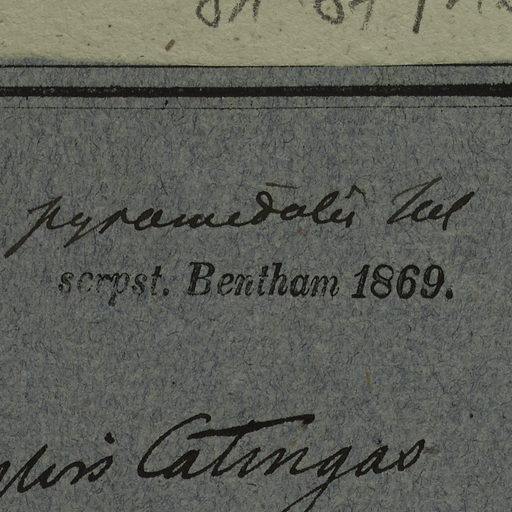 pyramidalis Vel
scrpst. Bentham 1869.
Catingas